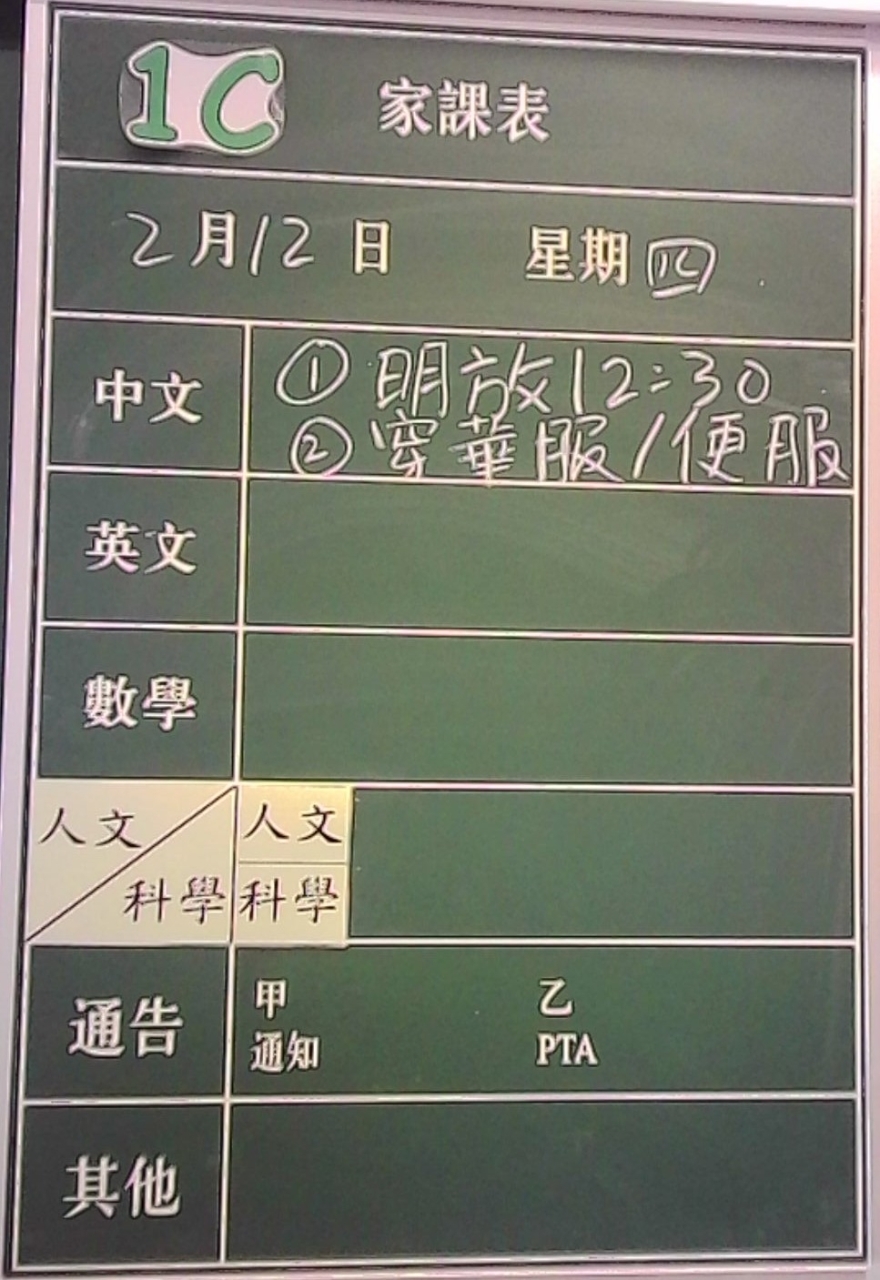 1C 家課表
2月12日 星期四
中文 ① 明放12:30
② 穿華服/便服
英文
數學
人文/科學 人文
科學
通告 甲 乙
通知 PTA
其他